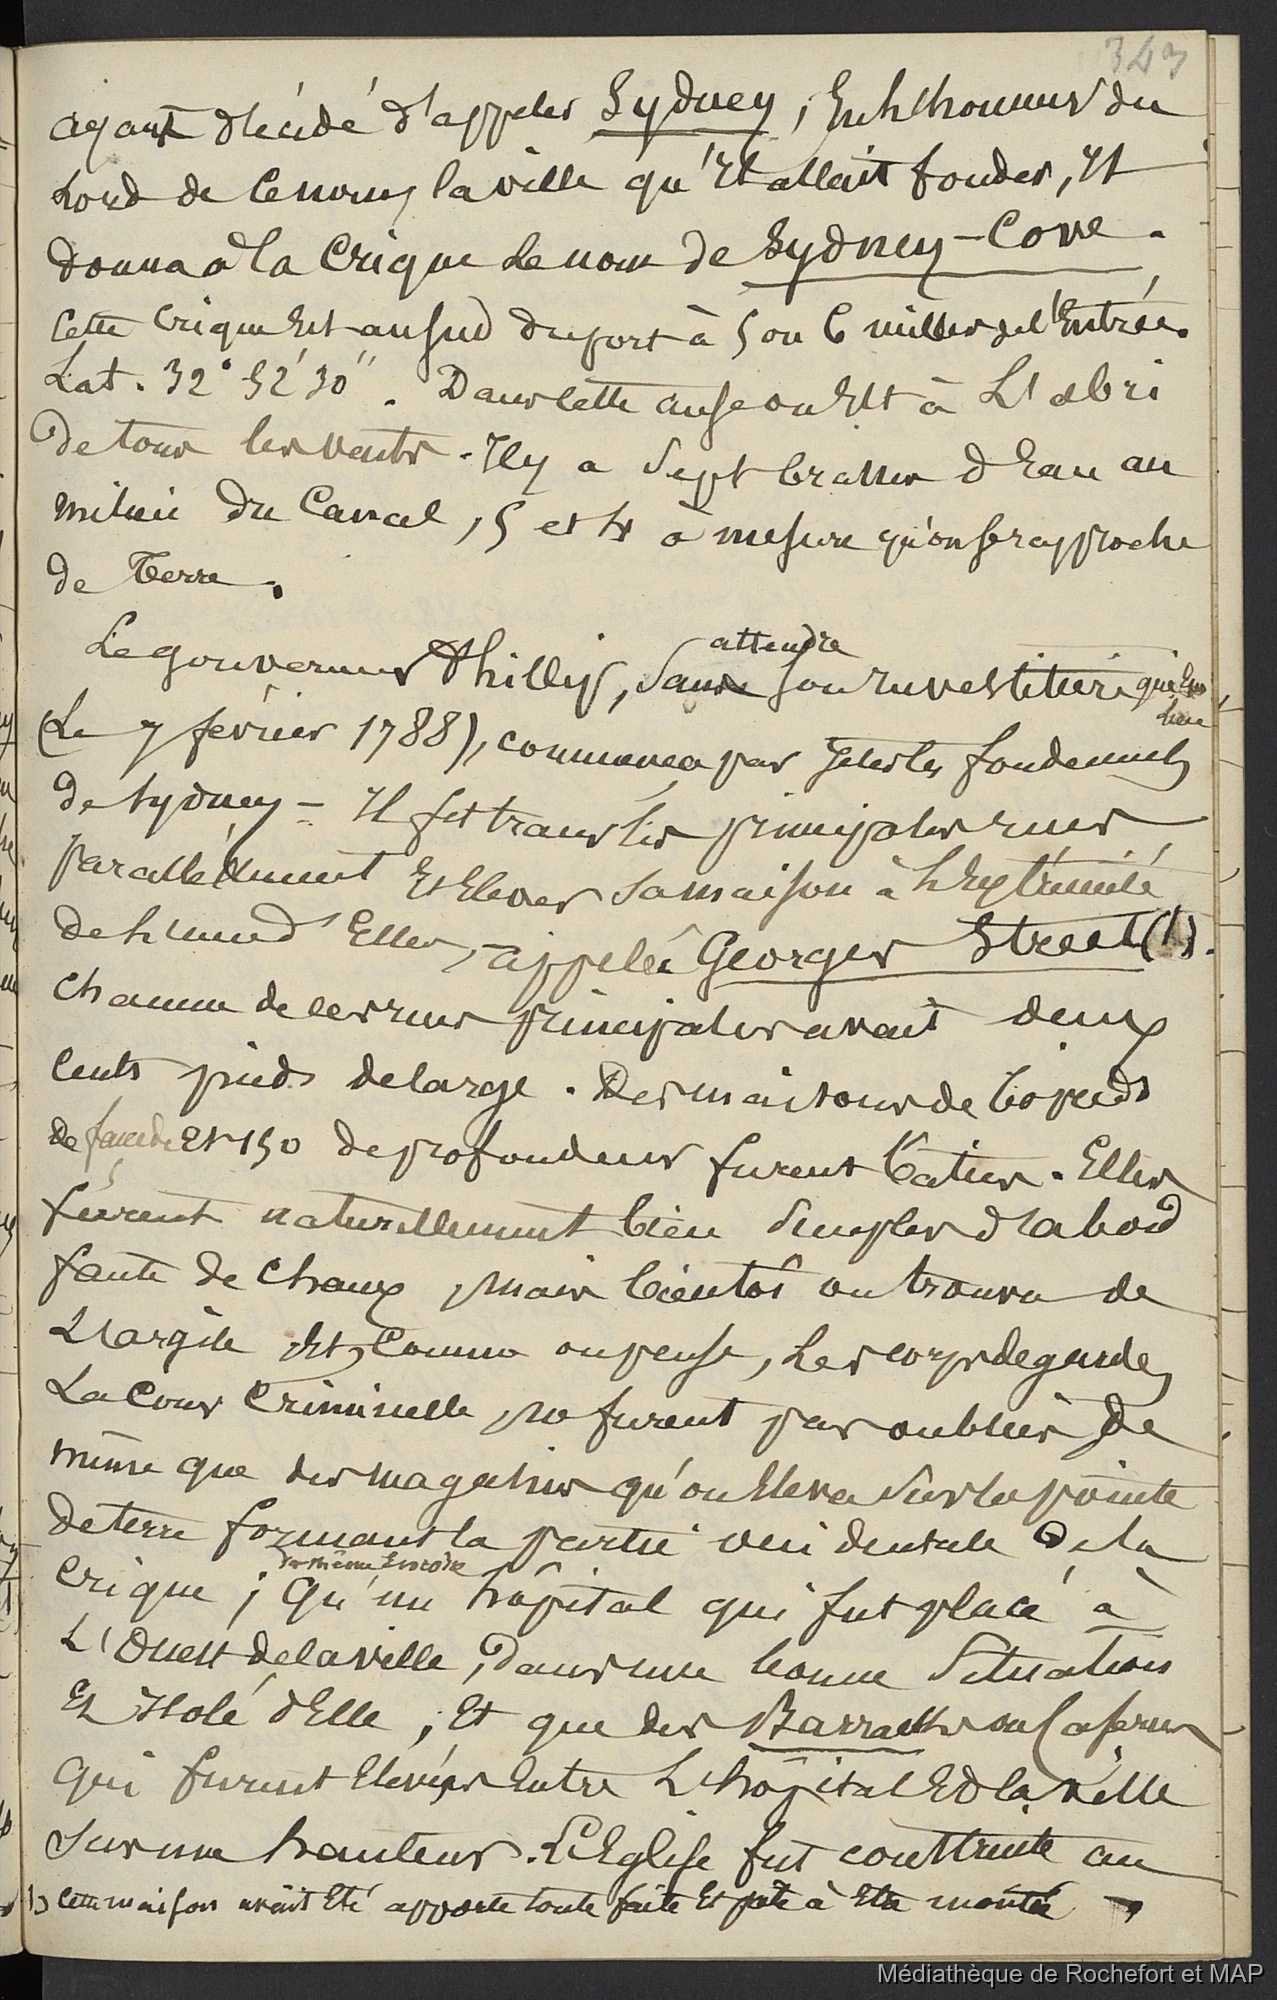 343
ayant décidé d'appeler Sydney, En l'honneur du
Lord de ce nom, la ville qu'Il allait fonder, Il
donna à la Crique le nom de Sydney-Cove.
Cette Crique Est au sud du port à 5 ou 6 milles de l'Entrée.
Lat. 32° 52' 30". Dans cette anse on Est à L'abri
De tous les vents. Il y a Sept brasses d'Eau au
milieu Du Canal, 5 et 4 à mesure qu'on se rapproche
de Terre.
attendre
Le gouverneur Phillip, Sans son Investiture qui Eut
lieu
(Le 7 février 1788), commença par Jeter les fondements
de Sydney - Il fit tracer les principales rues
parallèlement Et Elever Sa maison à L'Extrémité
de L'une d'Elles, appelée Georges Street (1).
Chacune de ces rues principales avait deux
Cents pieds de large. Des maisons de 60 pieds
de façade Et 150 de profondeur furent baties. Elles
furent naturellement bien Simples d'abord
faute de Chaux, Mais bientôt on trouva de
L'argile Et, Comme on pense, Les corps de garde,
La Cour Criminelle ne furent pas oubliés De
même que des magasins qu'on Eleva Sur la pointe
De terre formant la partie occidentale De la
de même Encore
Crique ; Qu'un hôpital qui fut placé à
L'Ouest de la ville, Dans une bonne Situation
Et Isolé d'Elle ; Et que des Barracks ou Casernes
Qui furent Elevées Entre L'hôpital Et la ville
Sur une hauteur. L'Eglise fut construite au
1) Cette maison avait Eté apporté toute faite Et prête à Etre montée
Médiathèque de Rochefort et MAP